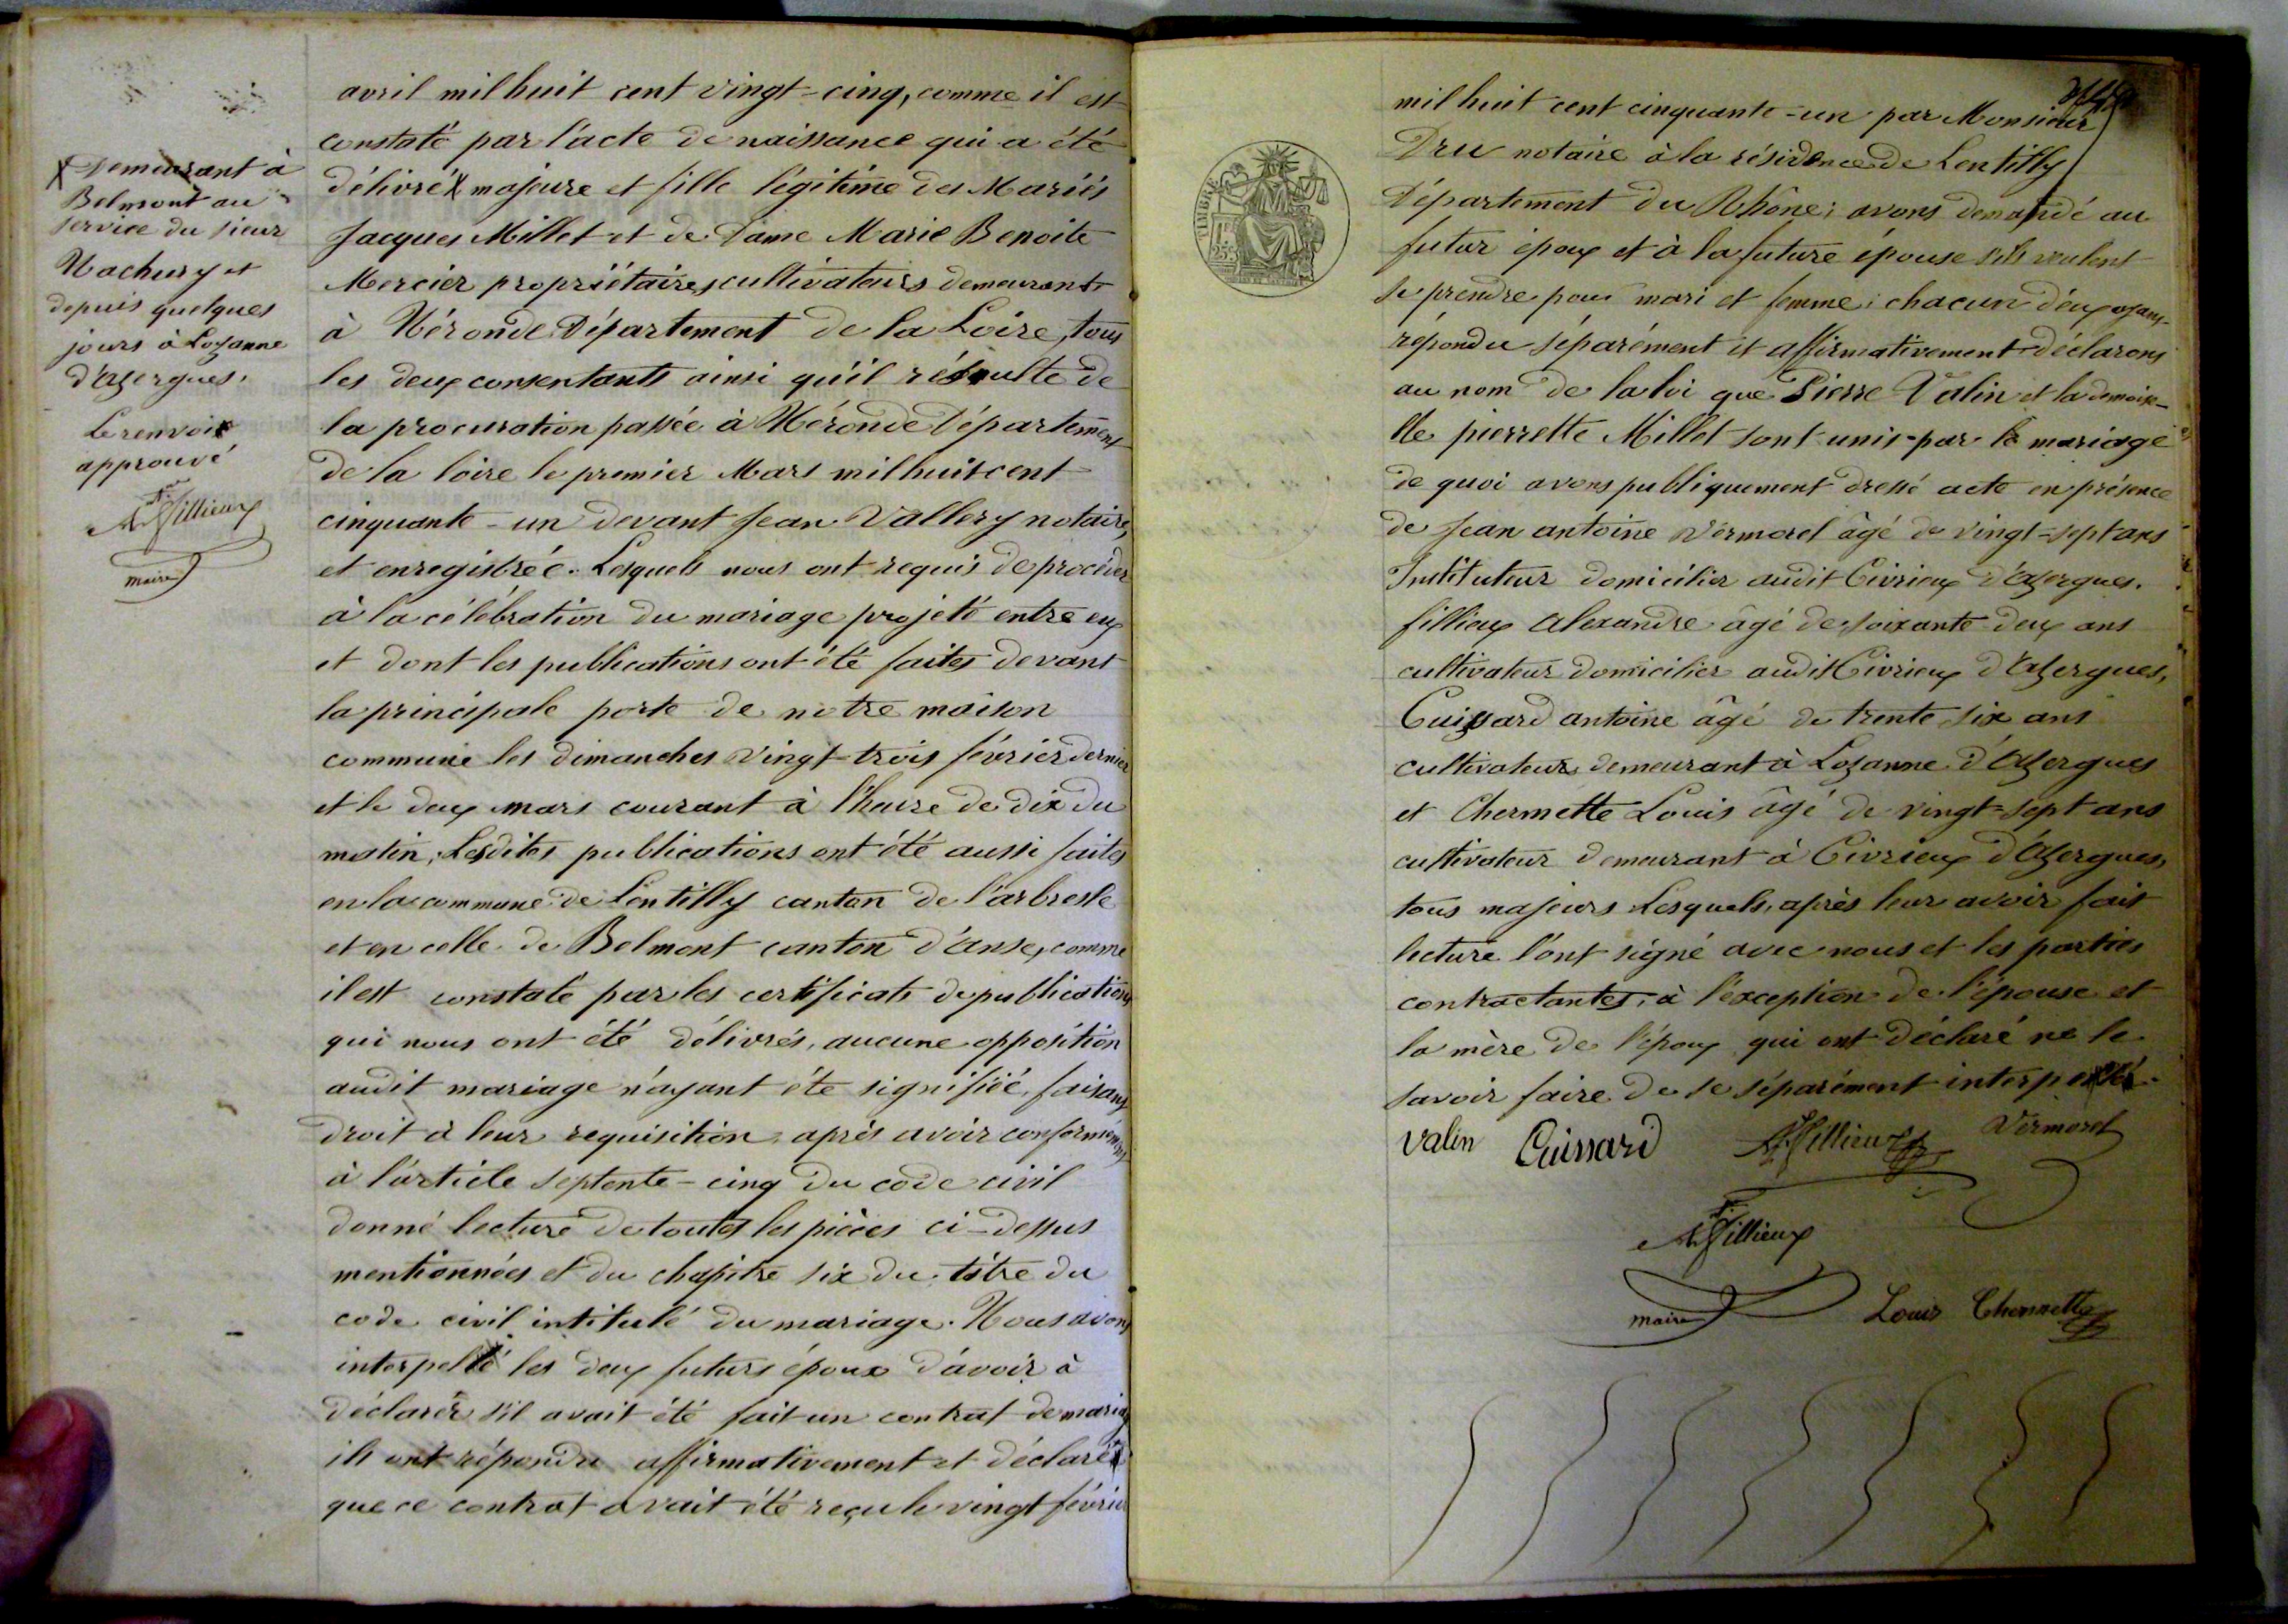 Demeurant à
Belmont au
service du sieur
Nachury et
depuis quelques
jours à Lozanne
d'Azergues.
Le renvoi
approuvé
A. Fillieux
maire
avril mil huit cent vingt-cinq, comme il est
constaté par l'acte de naissance qui a été
délivré majeure et fille légitime des Mariés
Jacques Millet et de Dame Marie Benoite
Mercier propriétaires cultivateurs demeurants
à Néronde Département de la Loire, tous
les deux consentants ainsi qu'il résulte de
la procuration passée à Néronde Département
de la loire le premier Mars mil huit cent
cinquante-un devant Jean Vallery notaire,
et enregistrée. Lesquels nous ont requis de procéder
à la célébration du mariage projeté entre eux
et dont les publications ont été faites devant
la principale porte de notre maison
commune les dimanches vingt-trois février dernier
et le deux mars courant à l'heure de dix du
matin; Lesdites publications ont été aussi faites
en la commune de Lentilly canton de l'arbresle
et en celle de Belmont canton d'Anse, comme
il est constaté par les certificats de publications
qui nous ont été délivrés, aucune opposition
audit mariage n'ayant éte signifiée, faisant
droit à leur requisition, après avoir conformément
à l'article septente-cinq du code civil
donné lecture de toutes les pièces ci-dessus
mentionnées et du chapitre six du titre du
code civil intitulé du mariage. Nous avons
interpellé les deux futurs époux d'avoir à
déclarer s'il avait été fait un contrat de mariage
ils ont répondu affirmativement et déclaré
que ce contrat avait été reçu le vingt février
mil huit cent cinquante-un par Monsieur
Dru notaire à la résidence de Lentilly
Département du Rhône; avons demandé au
futur époux et à la future épouse s'ils veulent
se prendre pour mari et femme; chacun d'eux ayant
répondu séparément et affirmativement déclarons
au nom de la loi que Pierre Valin et la demoise-
lle pierrette Millet sont unis par le mariage
de quoi avons publiquement dressé acte en présence
de Jean antoine Vermorel âgé de vingt-sept ans
Instituteur domicilier audit Civrieux d'Azergues.
fillieux Alexandre âgé de soixante deux ans
cultivateur domicilier audit Civrieux d'Azergues,
Cuissard antoine âgé de trente six ans
cultivateur demeurant à Lozanne d'Azergues
et Chermette Louis âgé de vingt-sept ans
cultivateur demeurant à Civrieux d'Azergues,
tous majeurs Lesquels, après leur avoir fait
lecture l'ont signé avec nous et les parties
contractantes, à l'exception de l'épouse et
la mère de l'époux qui ont déclaré ne le
savoir faire de se séparément interpellé
Valin Cuissard A. Fillieux Vermorel
A. Fillieux
maire Louis Chermette
TIMBRE